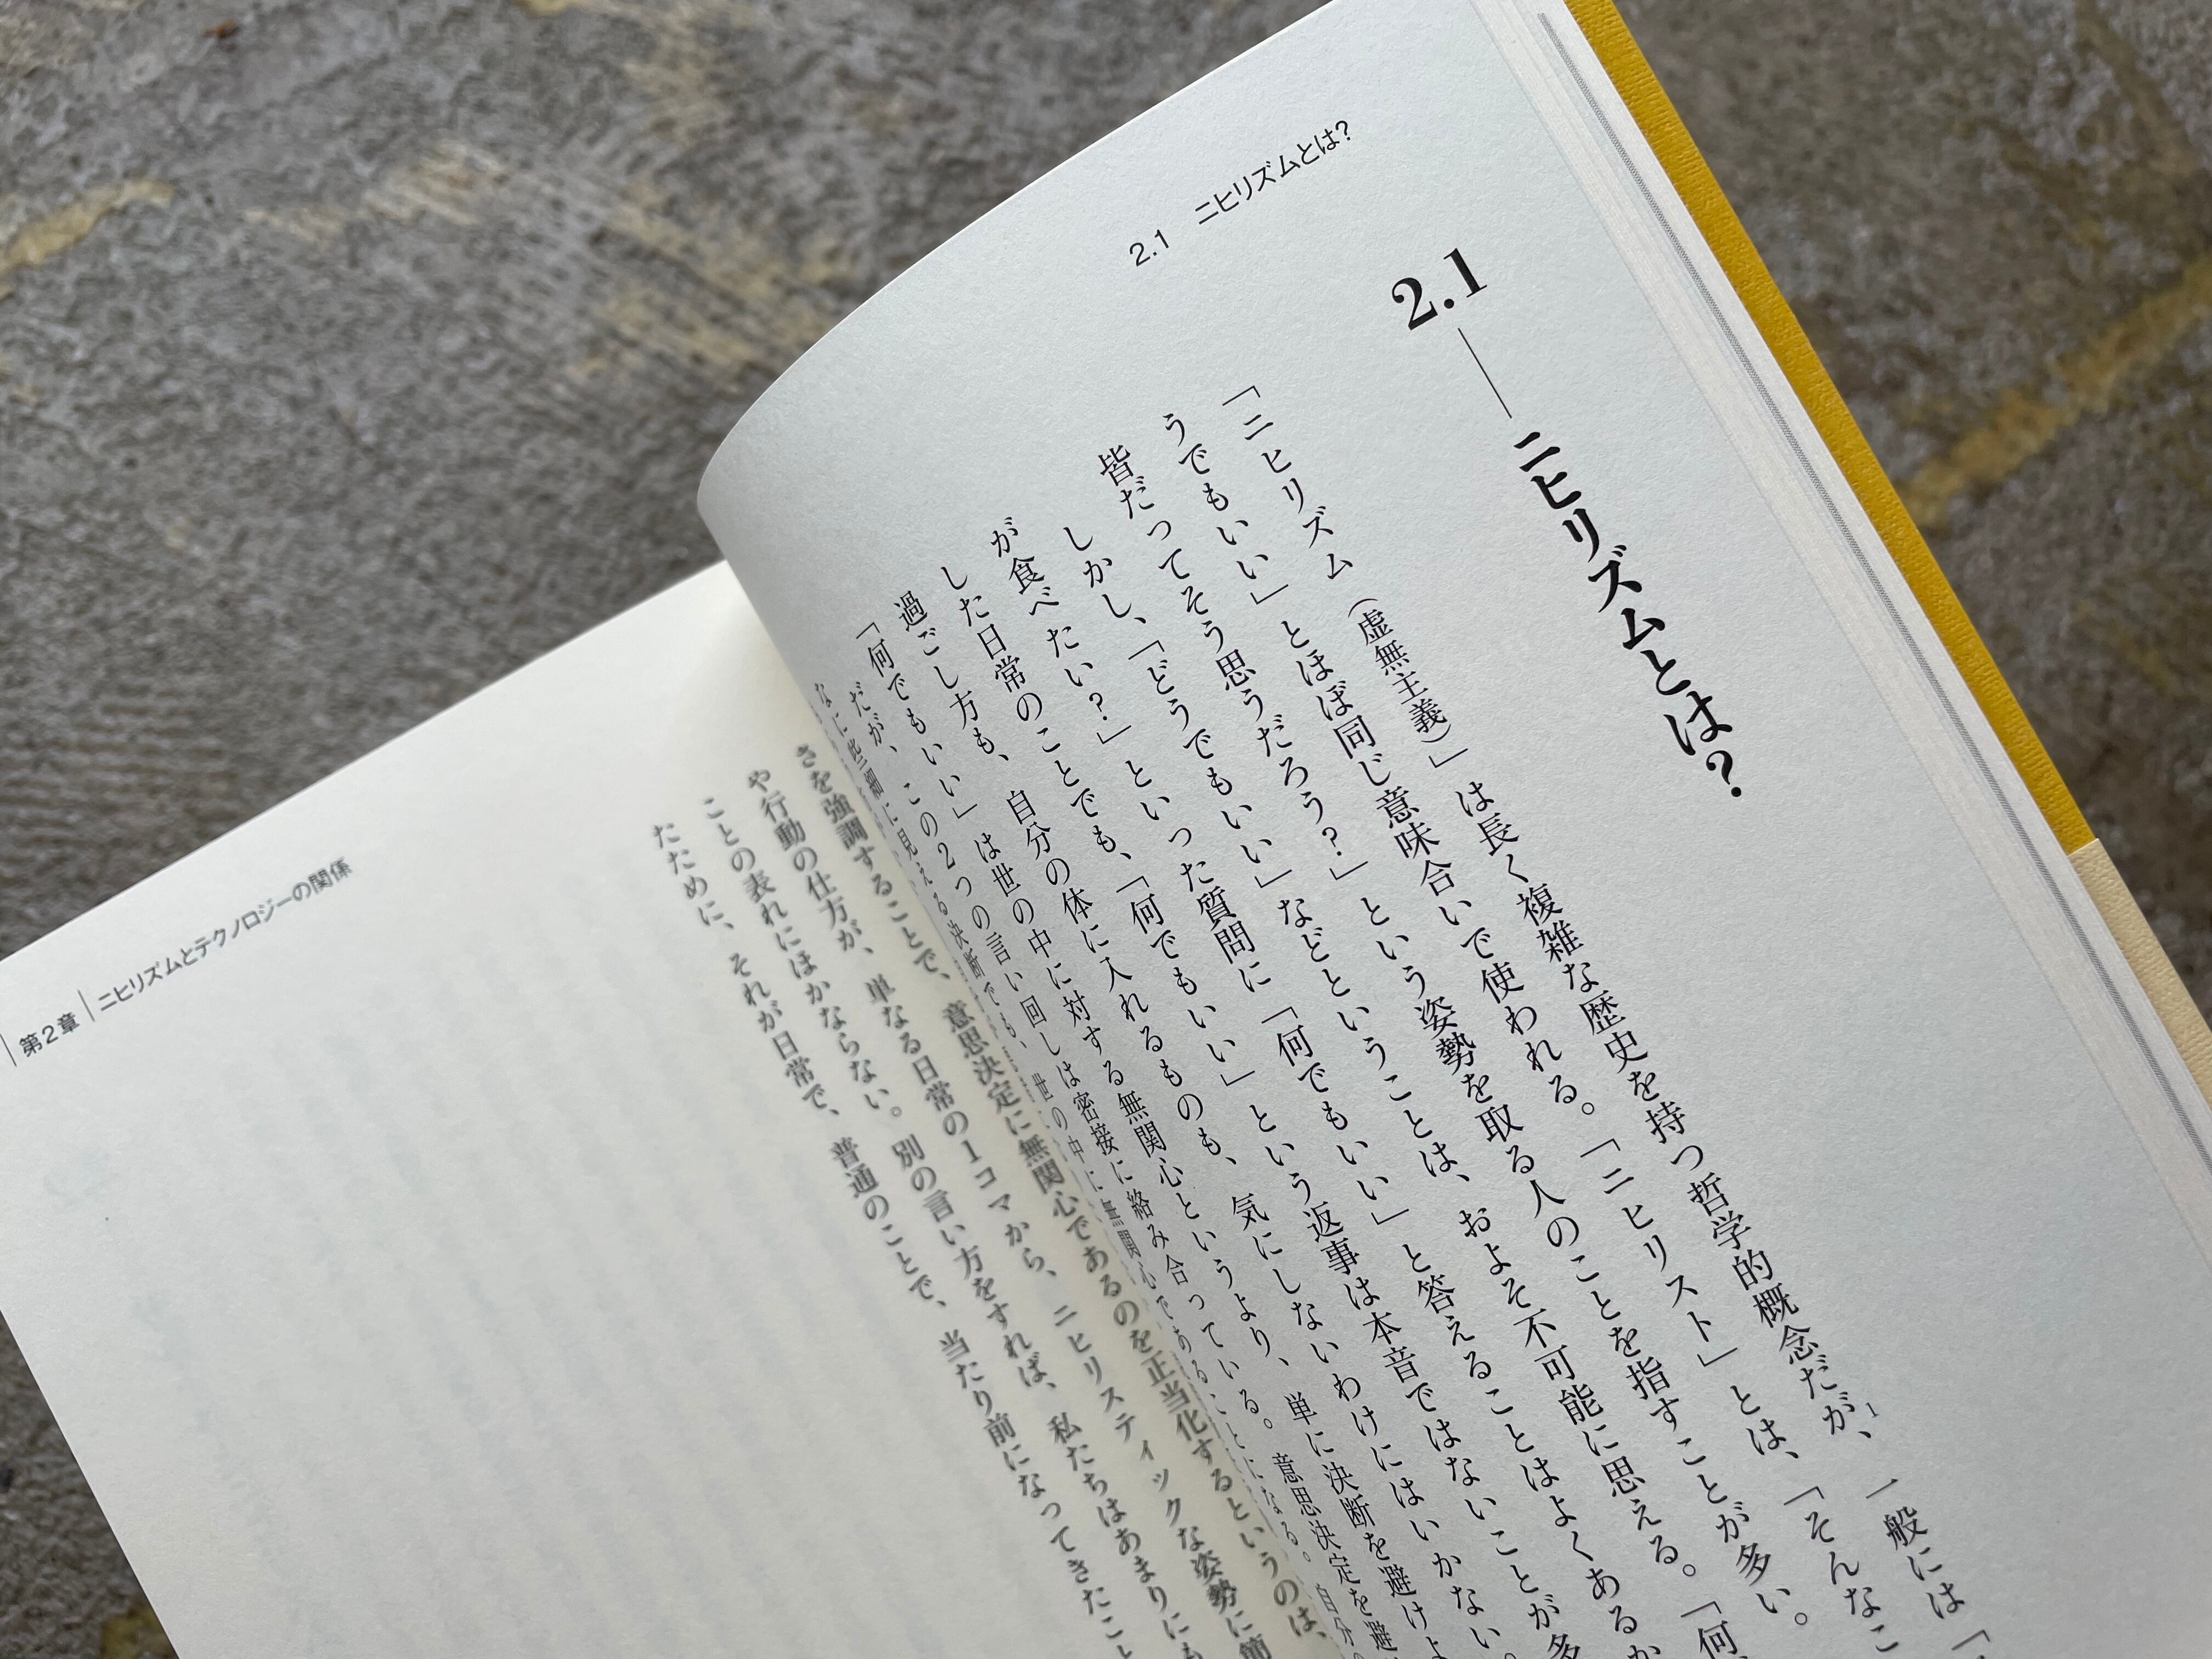 2.1 ニヒリズムとは?
2.1 ── ニヒリズムとは?
「ニヒリズム(虚無主義)」は長く複雑な歴史を持つ哲学的概念だが、1 一般には「
うでもいい」とほぼ同じ意味合いで使われる。「ニヒリスト」とは、「そんなこ
皆だってそう思うだろう?」という姿勢を取る人のことを指すことが多い。
しかし、「どうでもいい」などということは、およそ不可能に思える。「何
が食べたい?」といった質問に「何でもいい」と答えることはよくあるか
した日常のことでも、「何でもいい」という返事は本音ではないことが多
過ごし方も、自分の体に入れるものも、気にしないわけにはいかない。
「何でもいい」は世の中に対する無関心というより、単に決断を避けよ
だが、この2つの言い回しは密接に絡み合っている。意思決定を避
なに些細に見える決断でも、世の中に無関心であることになる。自分の
さを強調することで、意思決定に無関心であるのを正当化するというのは、
や行動の仕方が、単なる日常の1コマから、ニヒリスティックな姿勢に
ことの表れにほかならない。別の言い方をすれば、私たちはあまりにも
たために、それが日常で、普通のことで、当たり前になってきたこと
第2章 ニヒリズムとテクノロジーの関係